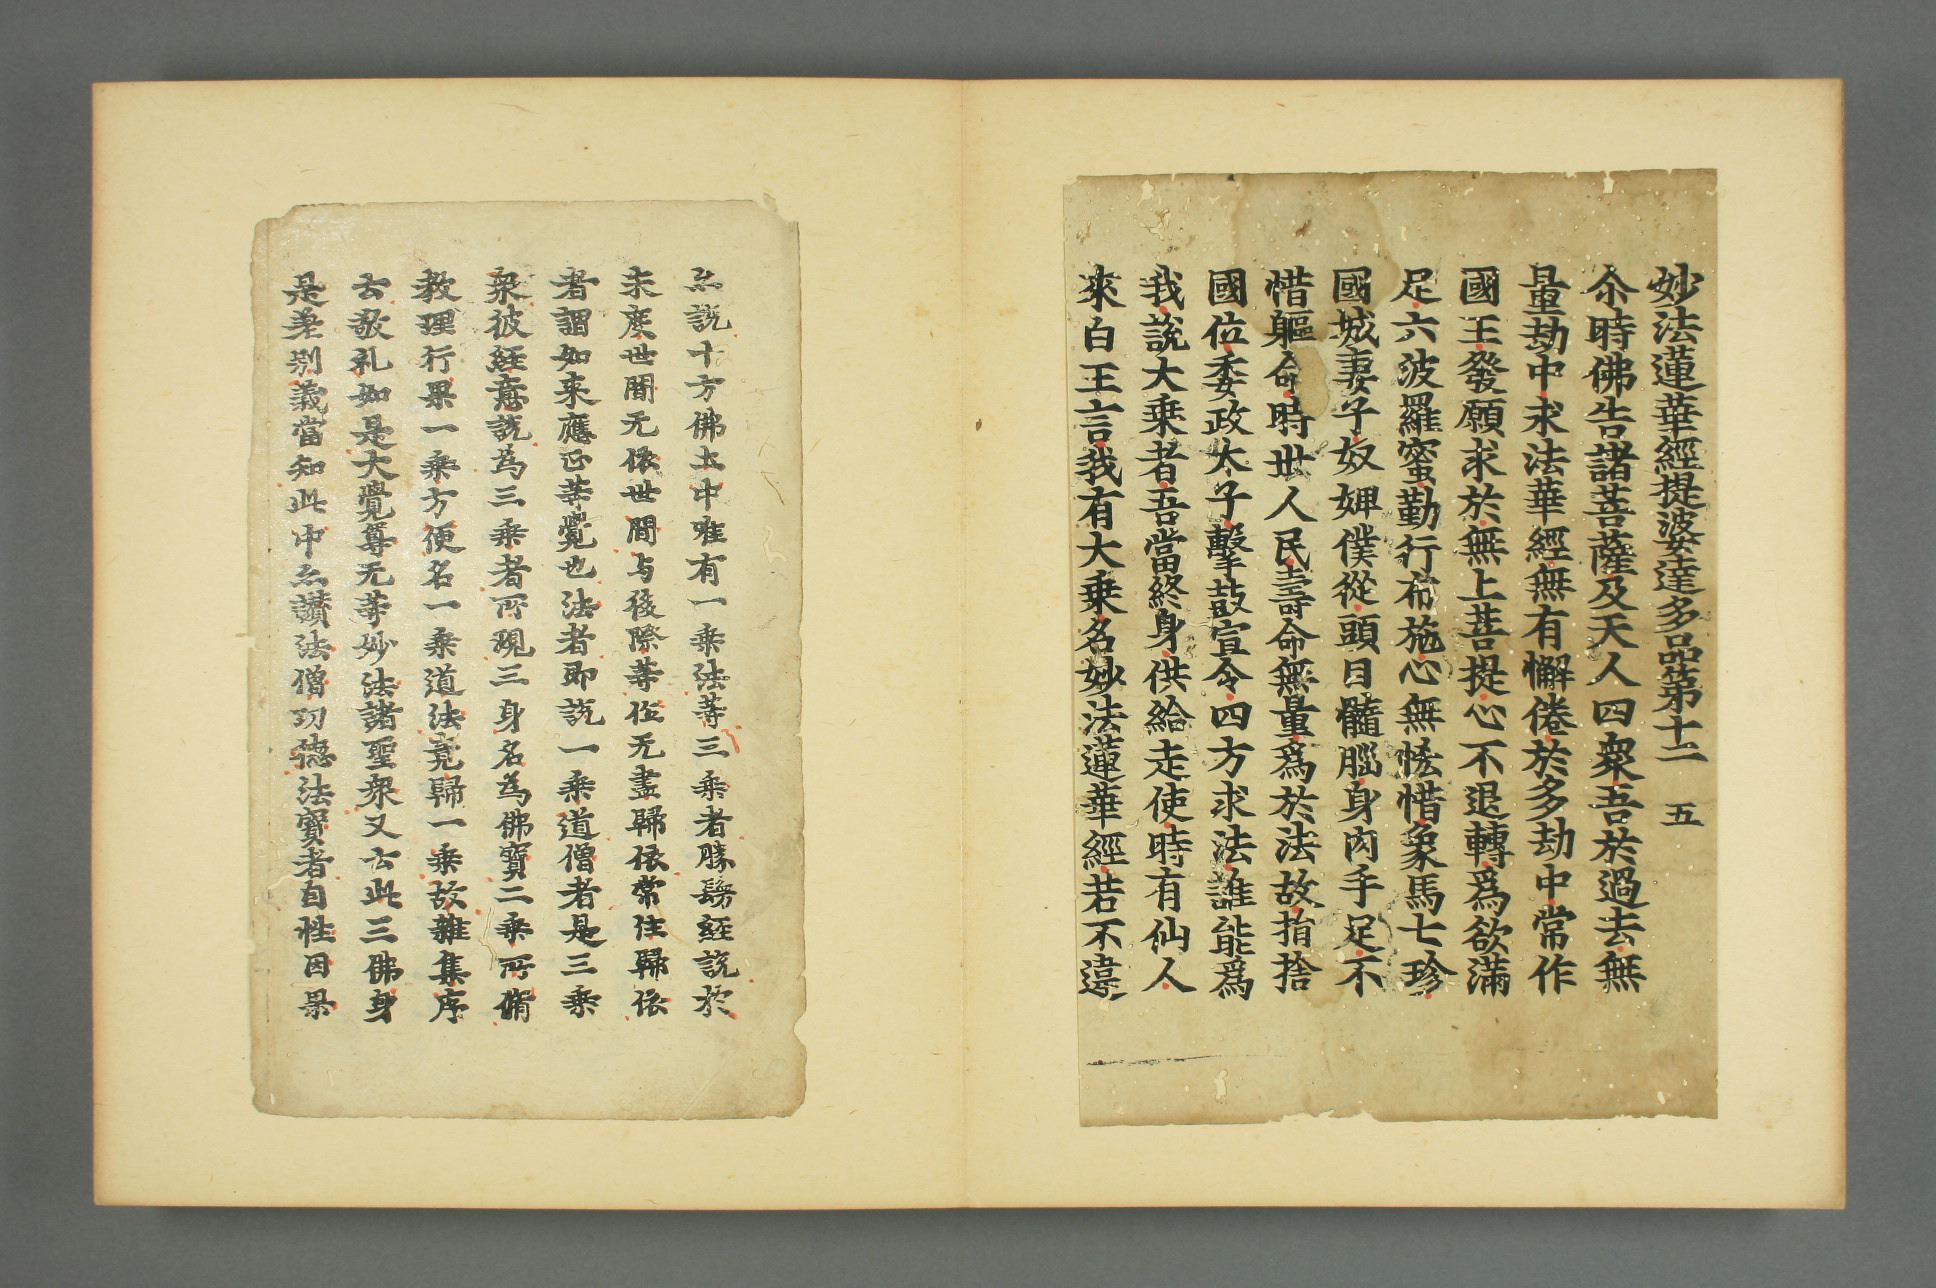 妙法蓮華經提婆達多品第十二　五
尒時佛告諸菩薩及天人四衆吾於過去無
量劫中求法華經無有懈倦於多劫中常作
國王發願求於無上菩提心不退轉爲欲滿
足六波羅蜜勤行布施心無悋惜象馬七珍
國城妻子奴婢僕從頭目髓腦身肉手足不
惜軀命時世人民壽命無量爲於法故捐捨
國位委政太子擊鼓宣令四方求法誰能爲
我說大乘者吾當終身供給走使時有仙人
來白王言我有大乘名妙法蓮華經若不違
亦說十方佛土中唯有一乘法等三乘者勝鬘經說於
未度世間无依世間与後際等住无盡歸依常住歸依
者謂如来應正等覺也法者即說一乘道僧者是三乘
衆彼經意說為三乘者所現三身名為佛寶二乘所脩
教理行果一乘方便名一乘道法竟歸一乘故雜集序
云敬礼如是大覺尊无等妙法諸聖衆又云此三佛身
是差别義當知此中亦讃法僧功德法寶者自性因果